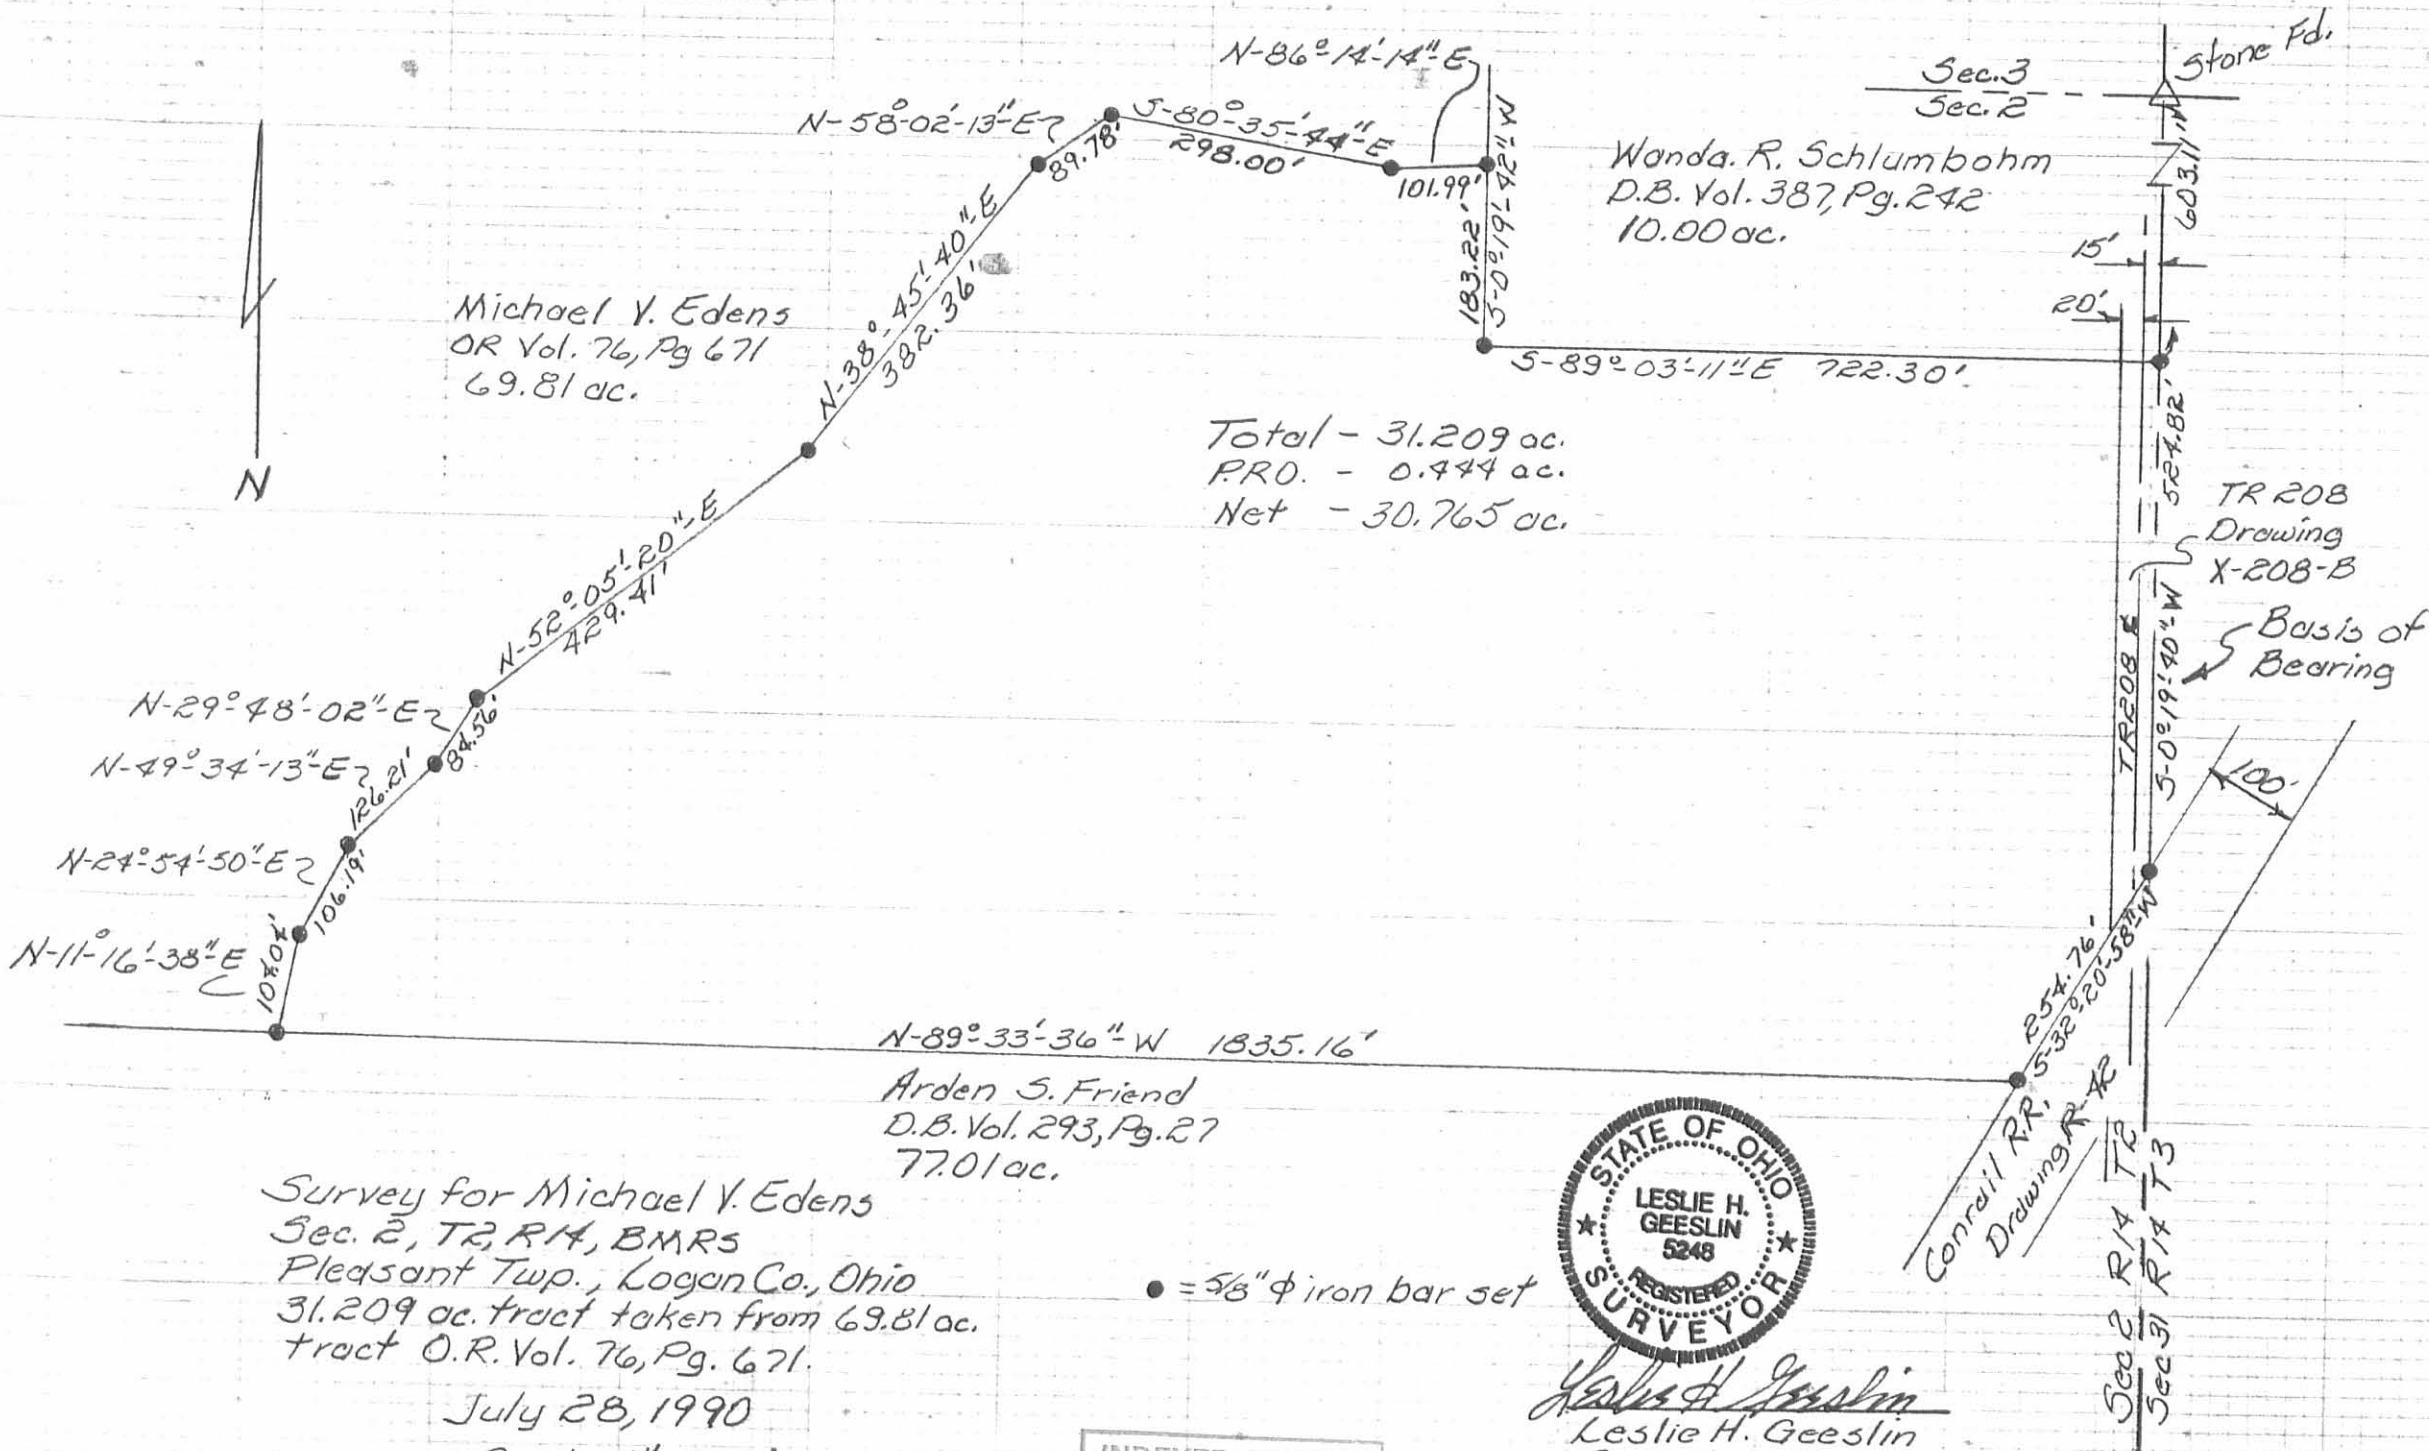 N-86°-14'-14"-E
Stone Fd.
Sec. 3
Sec. 2
N-58°-02'-13"-E
89.78'
S-80°-35'-44"-E
298.00'
101.99'
183.22'
S-0°-19'-42"-W
Wanda. R. Schlumbohm
D.B. Vol. 387, Pg. 242
10.00 ac.
603.11'
15'
20'
Michael V. Edens
OR Vol. 76, Pg 671
69.81 ac.
N-38°-45'-40"-E
382.36'
S-89°-03'-11"-E 722.30'
Total - 31.209 ac.
P.R.O. - 0.444 ac.
Net - 30.765 ac.
N
524.82'
TR 208
Drawing
X-208-B
Basis of
Bearing
TR208 ℄
S-0°-19'-40"-W
100'
N-52°-05'-20"-E
429.41'
N-29°-48'-02"-E
84.56'
N-49°-34'-13"-E
126.21'
N-24°-54'-50"-E
106.19'
N-11°-16'-38"-E
104.04'
N-89°-33'-36"-W 1835.16'
254.76'
S-32°-20'-58"-W
Arden S. Friend
D.B. Vol. 293, Pg. 27
77.01 ac.
Conrail R.R.
Drawing R-42
Sec 2 R14 T2
Sec 31 R14 T3
Survey for Michael V. Edens
Sec. 2, T2, R14, BMRS
Pleasant Twp., Logan Co., Ohio
31.209 ac. tract taken from 69.81 ac.
tract O.R. Vol. 76, Pg. 671.
July 28, 1990
● = 5/8" ϕ iron bar set
STATE OF OHIO
LESLIE H.
GEESLIN
5248
REGISTERED
SURVEYOR
Leslie H Geeslin
Leslie H. Geeslin